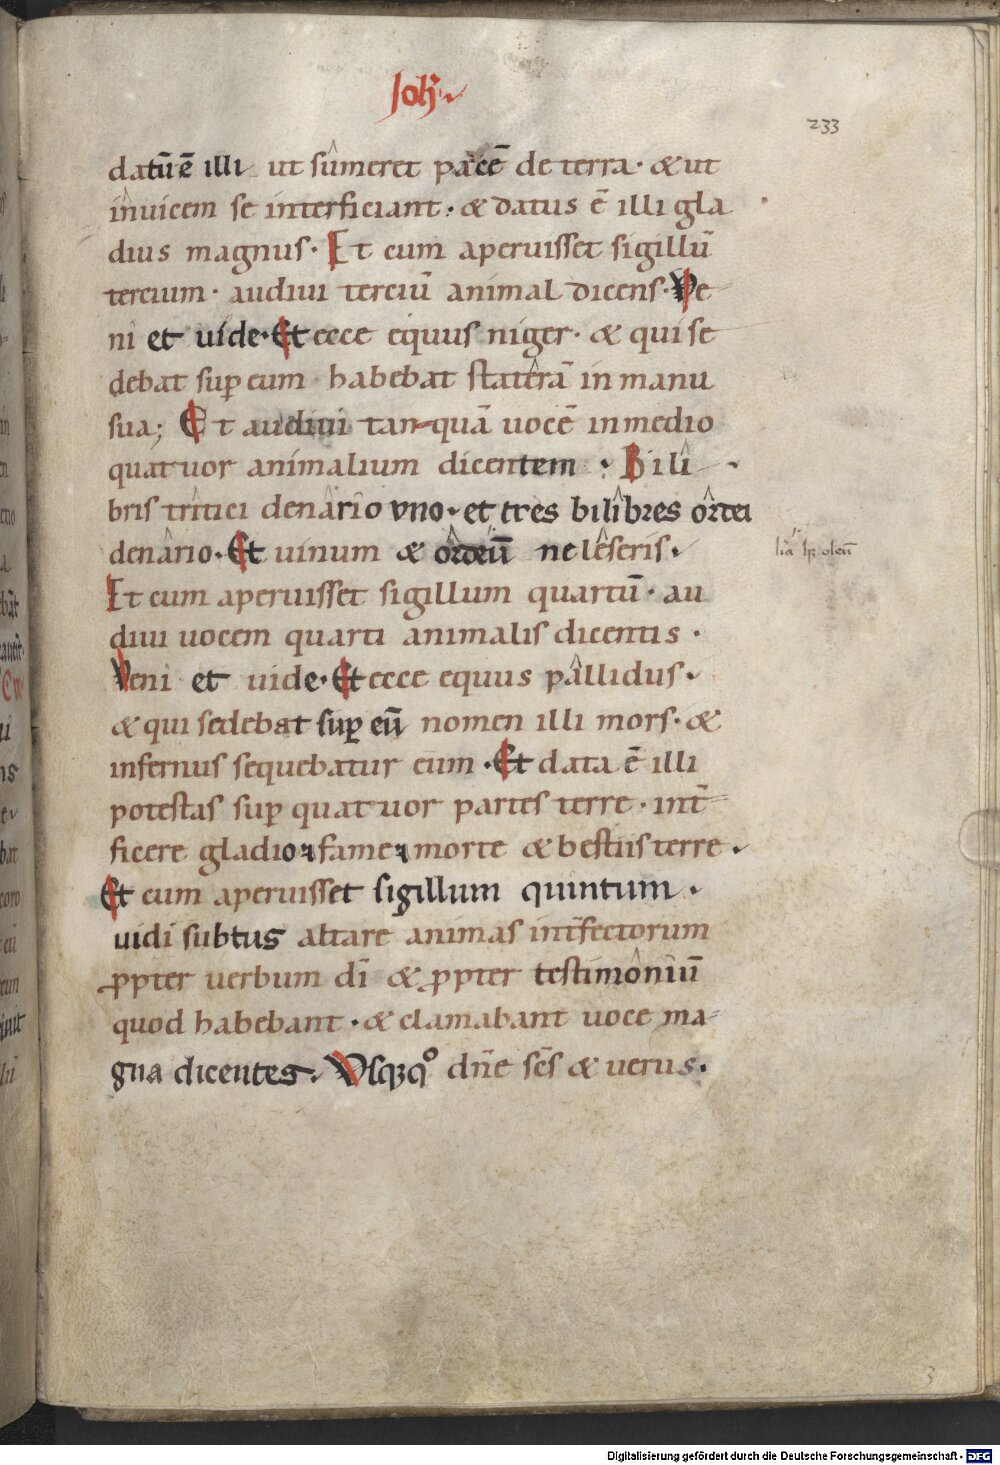 Joħ
233
datū ē illi ut sûmeret pacē de terra · & ut
inuicem se interficiant · & datus ē illi gla
dius magnus · Et cum aperuisset sigillū
tercium · audiui terciū animal dicens · Ve
ni et uide · Et ecce equus niger · & qui se
debat sup eum habebat staterā in manu
sua; Et audiui tanquā uocē in medio
quatuor animalium dicentem · Bili
bris tritici denârio vno · et tres bilibres ordei
denârio · Et uinum & ordeū ne leseris ·
Et cum aperuisset sigillum quartū · au
diui uocem quarti animalis dicentis ·
Veni et uide · Et ecce equus pâllidus ·
& qui sedebat sup eū nomen illi mors · &
infernus sequebatur eum · Et data ē illi
potestas sup quatuor partes terre · int̄
ficere gladio ⁊ fame ⁊ morte & bestiis terre ·
Et cum aperuisset sigillum quintum ·
uidi subtus altare animas int̄fectorum
ꝓpter uerbum dī & ꝓpter testimôniū
quod habebant · & clamabant uoce ma
gna dicentes · Vsqꝫqͦ dn̄e sc̄s & uerus ·
oleū
3
Digitalisierung gefördert durch die Deutsche Forschungsgemeinschaft - DFG